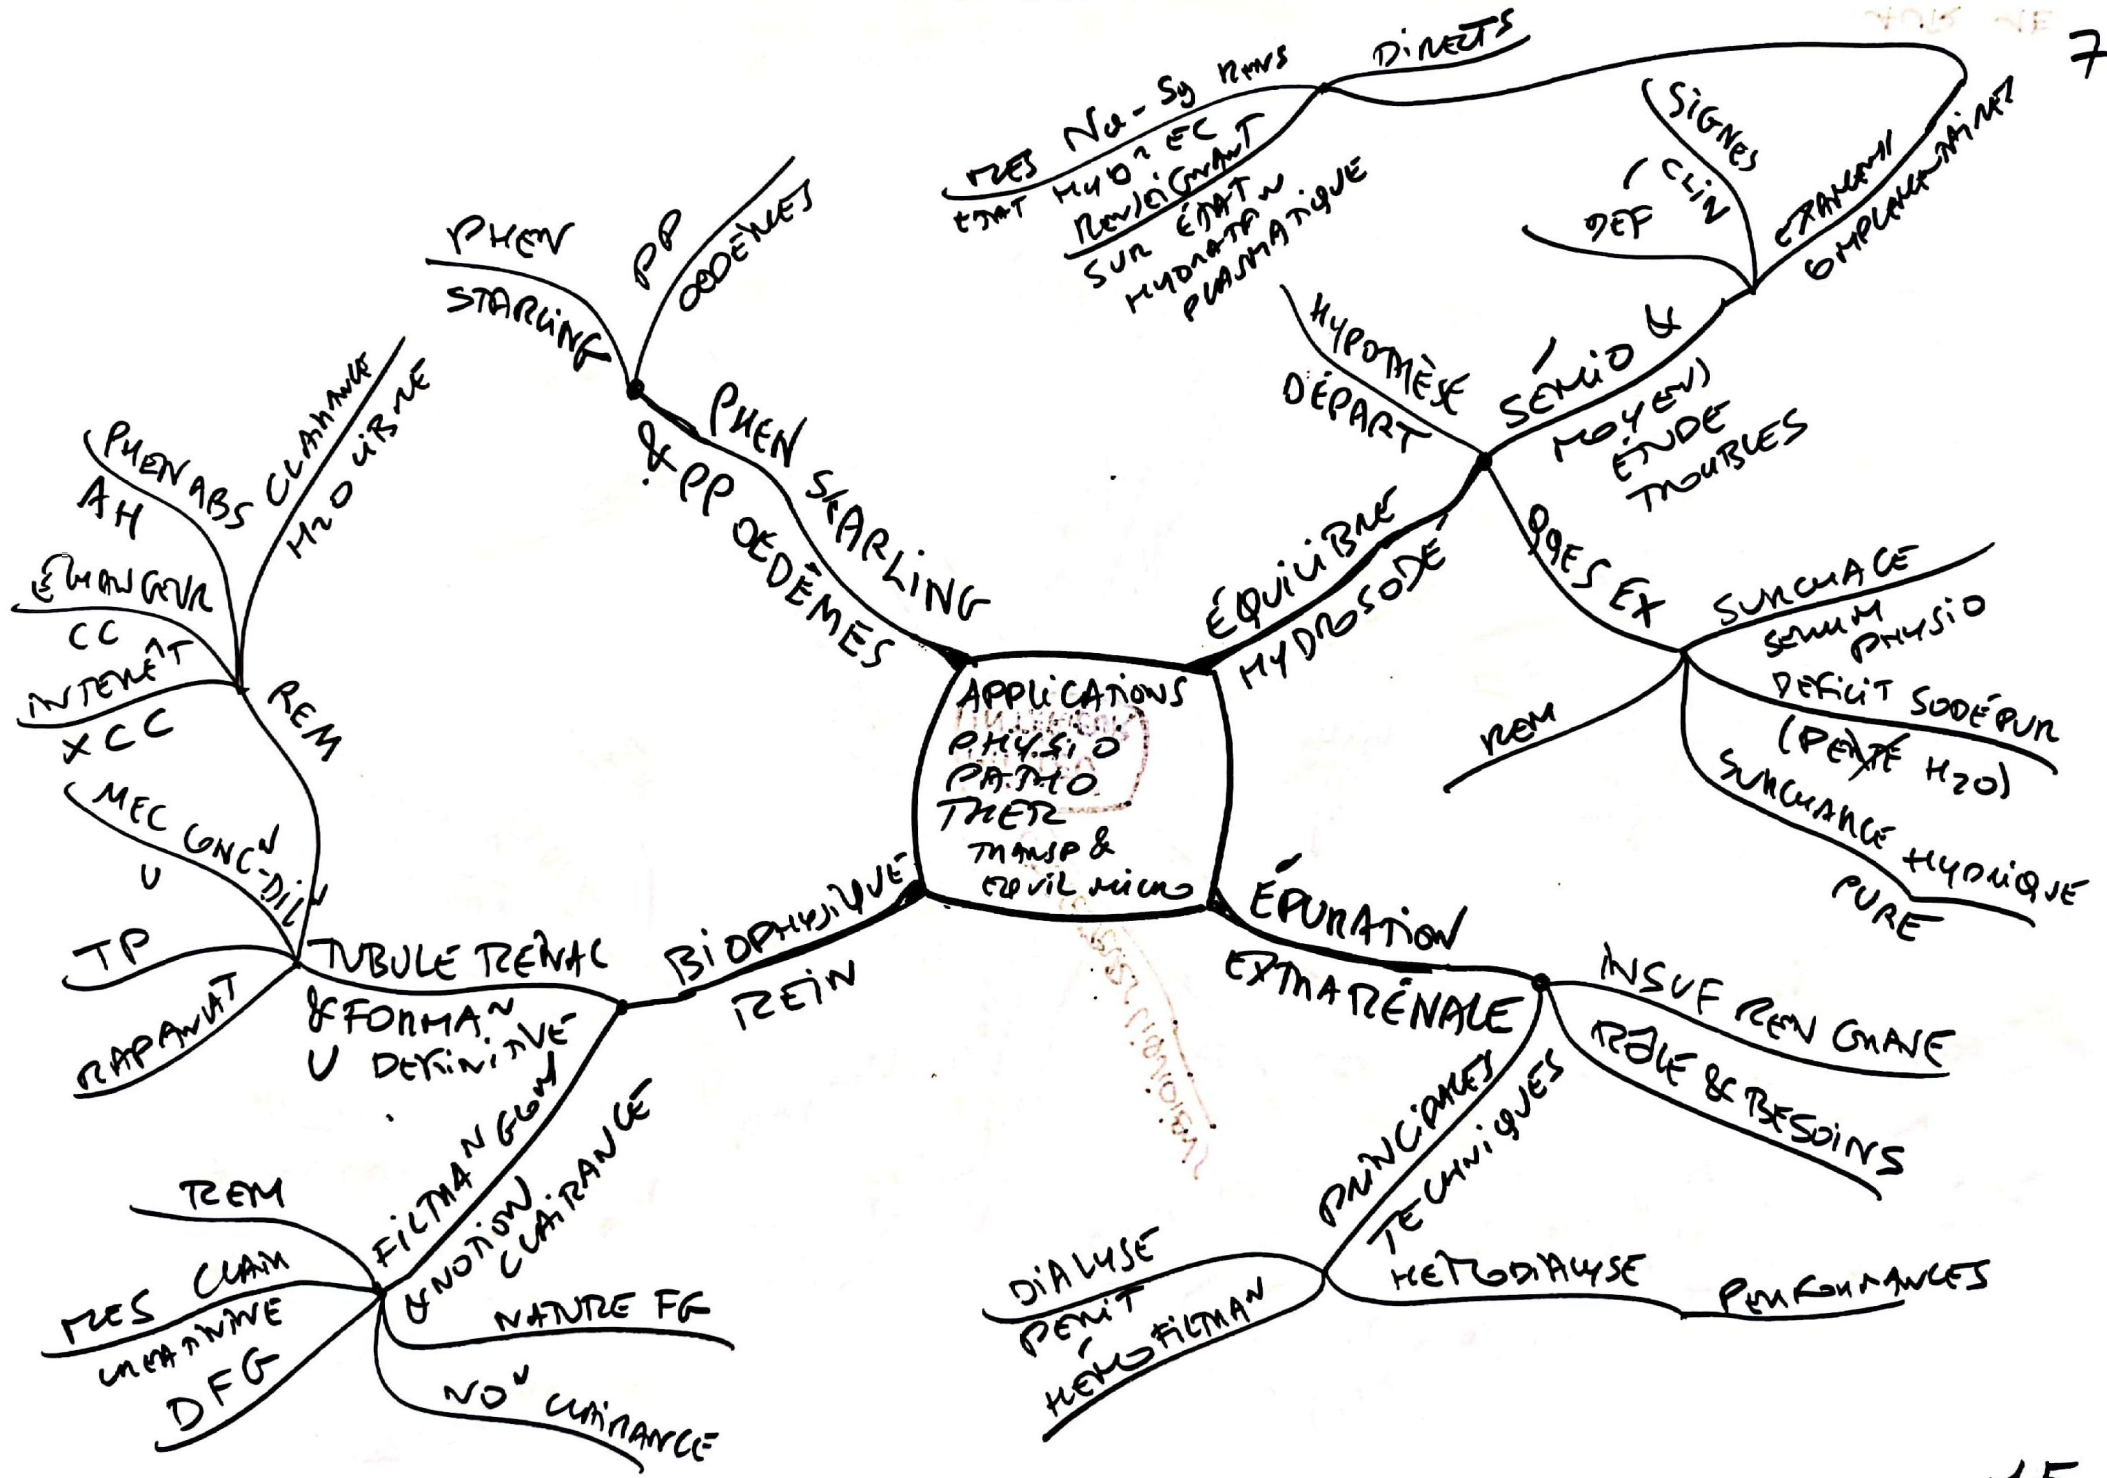 7
APPLICATIONS
PHYSIO
PATHO
THER
TRANSP &
EQUIL MICRO
PHEN STARLING
& PP OEDÈMES
PHEN
STARLING
PP
OEDÈMES
ÉQUILIBRE
HYDROSODÉ
HYPOTHÈSE
DÉPART
SÉMIO &
MOYENS
ÉTUDE
TROUBLES
DEF
SIGNES
CLIN
EXAMENS
COMPLEMENTAIRES
DIRECTS
RENSEIGNANT
SUR ÉTAT
HYDRATAN
PLASMATIQUE
MES Na - Sg RENS
ETAT HYDN EC
QQES EX
SURCHAGE
SERUM
PHYSIO
DEFICIT SODÉ PUR
(PERTE H2O)
SURCHARGE HYDRIQUE
PURE
REM
ÉPURATION
EXTRARÉNALE
INSUF REN GRAVE
RÔLE & BESOINS
PRINCIPALES
TECHNIQUES
HEMODIALYSE
PERFORMANCES
DIALYSE
PERIT
HÉMOFILTRAN
BIOPHYSIQUE
REIN
TUBULE RÉNAL
& FORMAN
U DEFINITIVE
REM
CLAIRANCE
H2O LIBRE
PHEN ABS
AH
ÉCHANGEUR
CC
INTERÊT
X CC
MEC CONCN-DILN
U
TP
RAPANUT
FILTRAN GLOM
& NOTION
CLAIRANCE
REM
MES CLAIR
CREATININE
DFG
NATURE FG
NON CLAIRANCE
15